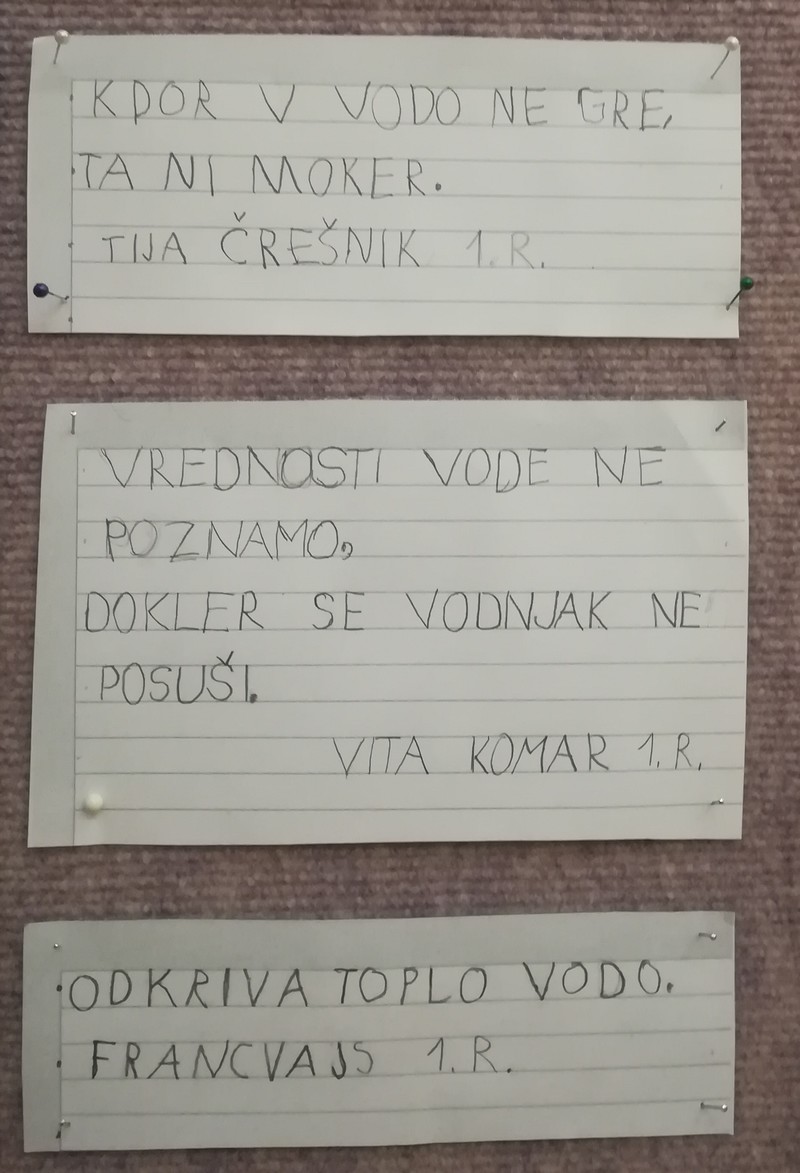 KDOR V VODO NE GRE,
TA NI MOKER.
TIJA ČREŠNIK 1. R.
VREDNOSTI VODE NE
POZNAMO,
DOKLER SE VODNJAK NE
POSUŠI.
VITA KOMAR 1. R.
ODKRIVA TOPLO VODO.
FRANCVAJS 1. R.